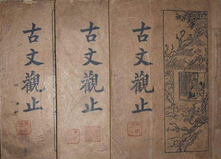 古文觀止
古文觀止
古文觀止